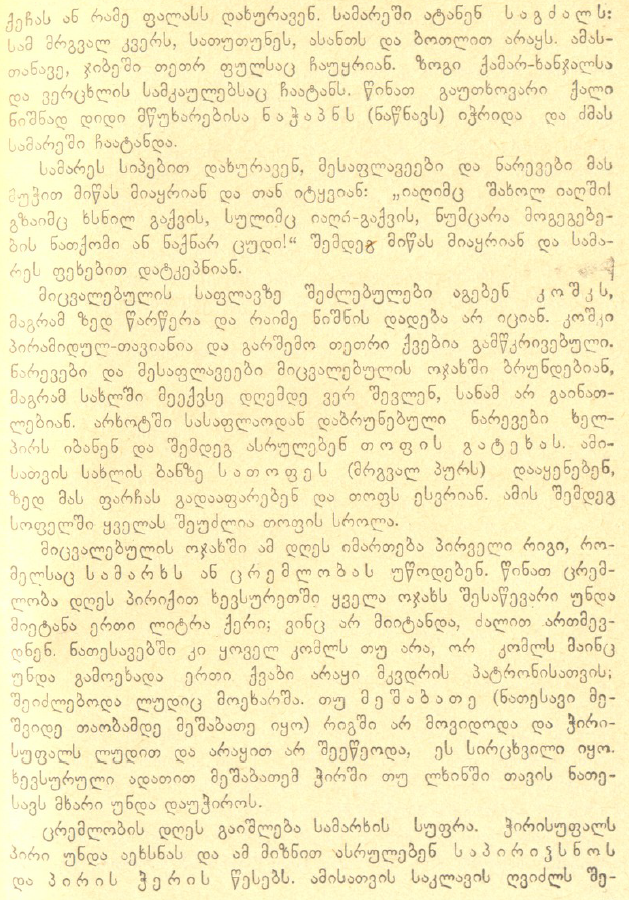 ქეჩას ან რამე ფალასს დახურავენ. სამარეში ატანენ ს ა გ ძ ა ლ ს:
სამ მრგვალ კვერს, სათუთუნეს, ასანთს და ბოთლით არაყს. ამას-
თანავე, ჯიბეში თეთრ ფულსაც ჩაუყრიან. ზოგი ქამარ-ხანჯალსა
და ვერცხლის სამკაულებსაც ჩაატანს. წინათ გაუთხოვარი ქალი
ნიშნად დიდი მწუხარებისა ნ ა ჭ ა პ ნ ს (ნაწნავს) იჭრიდა და ძმას
სამარეში ჩაატანდა.
სამარეს სიპებით დახურავენ, მესაფლავეები და ნარევები მას
მუჭით მიწას მიაყრიან და თან იტყვიან: „იაღიმც შახოლ იაღში!
გზაიმც ხსნილ გაქვის, სულიმც იაღა-გაქვის, ნუმცარა მოგეგებე-
ბის ნათქომი ან ნაქნარ ცუდი!“ შემდეგ მიწას მიაყრიან და სამა-
რეს ფეხებით დატკეპნიან.
მიცვალებულის საფლავზე შეძლებულები აგებენ კ ო შ კ ს,
მაგრამ ზედ წარწერა და რაიმე ნიშნის დადება არ იციან. კოშკი
პირამიდულ-თავიანია და გარშემო თეთრი ქვებია გამწკრივებული.
ნარევები და მესაფლავეები მიცვალებულის ოჯახში ბრუნდებიან,
მაგრამ სახლში მეექვსე დღემდე ვერ შევლენ, სანამ არ გაინათ-
ლებიან. არხოტში სასაფლაოდან დაბრუნებული ნარევები ხელ-
პირს იბანენ და შემდეგ ასრულებენ თ ო ფ ი ს გ ა ტ ე ხ ა ს. ამი-
სათვის სახლის ბანზე ს ა თ ო ფ ე ს (მრგვალ პურს) დააყენებენ,
ზედ მას ფარჩას გადააფარებენ და თოფს ესვრიან. ამის შემდეგ
სოფელში ყველას შეუძლია თოფის სროლა.
მიცვალებულის ოჯახში ამ დღეს იმართება პირველი რიგი, რო-
მელსაც ს ა მ ა რ ხ ს ან ც რ ე მ ლ ო ბ ა ს უწოდებენ. წინათ ცრემ-
ლობა დღეს პირიქით ხევსურეთში ყველა ოჯახს შესაწევარი უნდა
მიეტანა ერთი ლიტრა ქერი; ვინც არ მიიტანდა, ძალით ართმევ-
დნენ. ნათესავებში კი ყოველ კომლს თუ არა, ორ კომლს მაინც
უნდა გამოეხადა ერთი ქვაბი არაყი მკვდრის პატრონისათვის;
შეიძლებოდა ლუდიც მოეხარშა. თუ მ ე შ ა ბ ა თ ე (ნათესავი მე-
შვიდე თაობამდე მეშაბათე იყო) რიგში არ მოვიდოდა და ჭირი-
სუფალს ლუდით და არაყით არ შეეწეოდა, ეს სირცხვილი იყო.
ხევსურული ადათით მეშაბათემ ჭირში თუ ლხინში თავის ნათე-
სავს მხარი უნდა დაუჭიროს.
ცრემლობის დღეს გაიშლება სამარხის სუფრა. ჭირისუფალს
პირი უნდა აეხსნას და ამ მიზნით ასრულებენ ს ა პ ი რ ი ჴ ს ნ ო ს
და პ ი რ ი ს ჭ ე რ ი ს წესებს. ამისათვის საკლავის ღვიძლს შე-